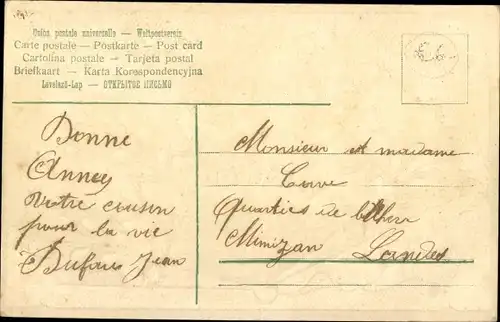 Union postale universelle — Weltpostverein
Carte postale — Postkarte — Post card
Cartolina postale — Tarjeta postal
Briefkaart — Karta Korespondencyjna
Levelező-Lap — ОТКРЫТОЕ ПИСЬМО
Bonne
Anney
Votre cousin
pour la vie
Dufau Jean
Monsieur et madame
Quartier de
Mimizan Landes